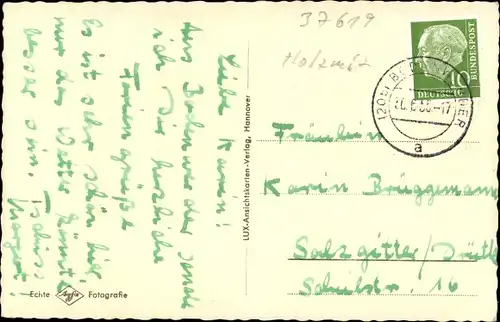 37619
Holzmi
Liebe Karin!
Aus Boden wer der sende
ich Dir herzliche
Feriengrüße
Es ist sehr schön hier
nur das Wetter könnte
besser sein. Tschüss
Margret!
LUX-Ansichtskarten-Verlag, Hannover
Echte Agfa Fotografie
10
DEUTSCHE
BUNDESPOST
(20b) BODENWERDER
-17
a
Fräulein
Karin Brüggemann
Salzgitter/
Schulstr. 16